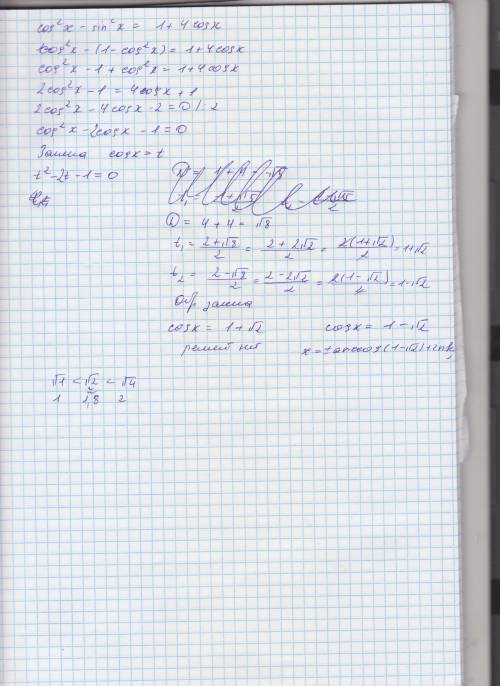 cos²x - sin²x = 1 + 4cosx
cos²x - (1 - cos²x) = 1 + 4cosx
cos²x - 1 + cos²x = 1 + 4cosx
2cos²x - 1 = 4cosx + 1
2cos²x - 4cosx - 2 = 0 /: 2
cos²x - 2cosx - 1 = 0
Замена cosx = t
t² - 2t - 1 = 0
D = 4 + 4 = √8
t₁ = (2+√8)/2 = (2+2√2)/2 = 2(1+√2)/2 = 1+√2
t₂ = (2-√8)/2 = (2-2√2)/2 = 2(1-√2)/2 = 1-√2
Обр. замена
cosx = 1+√2 cosx = 1-√2
решен нет x = ±arccos(1-√2)+2πk,
√1 < √2 < √4
1 1,8 2